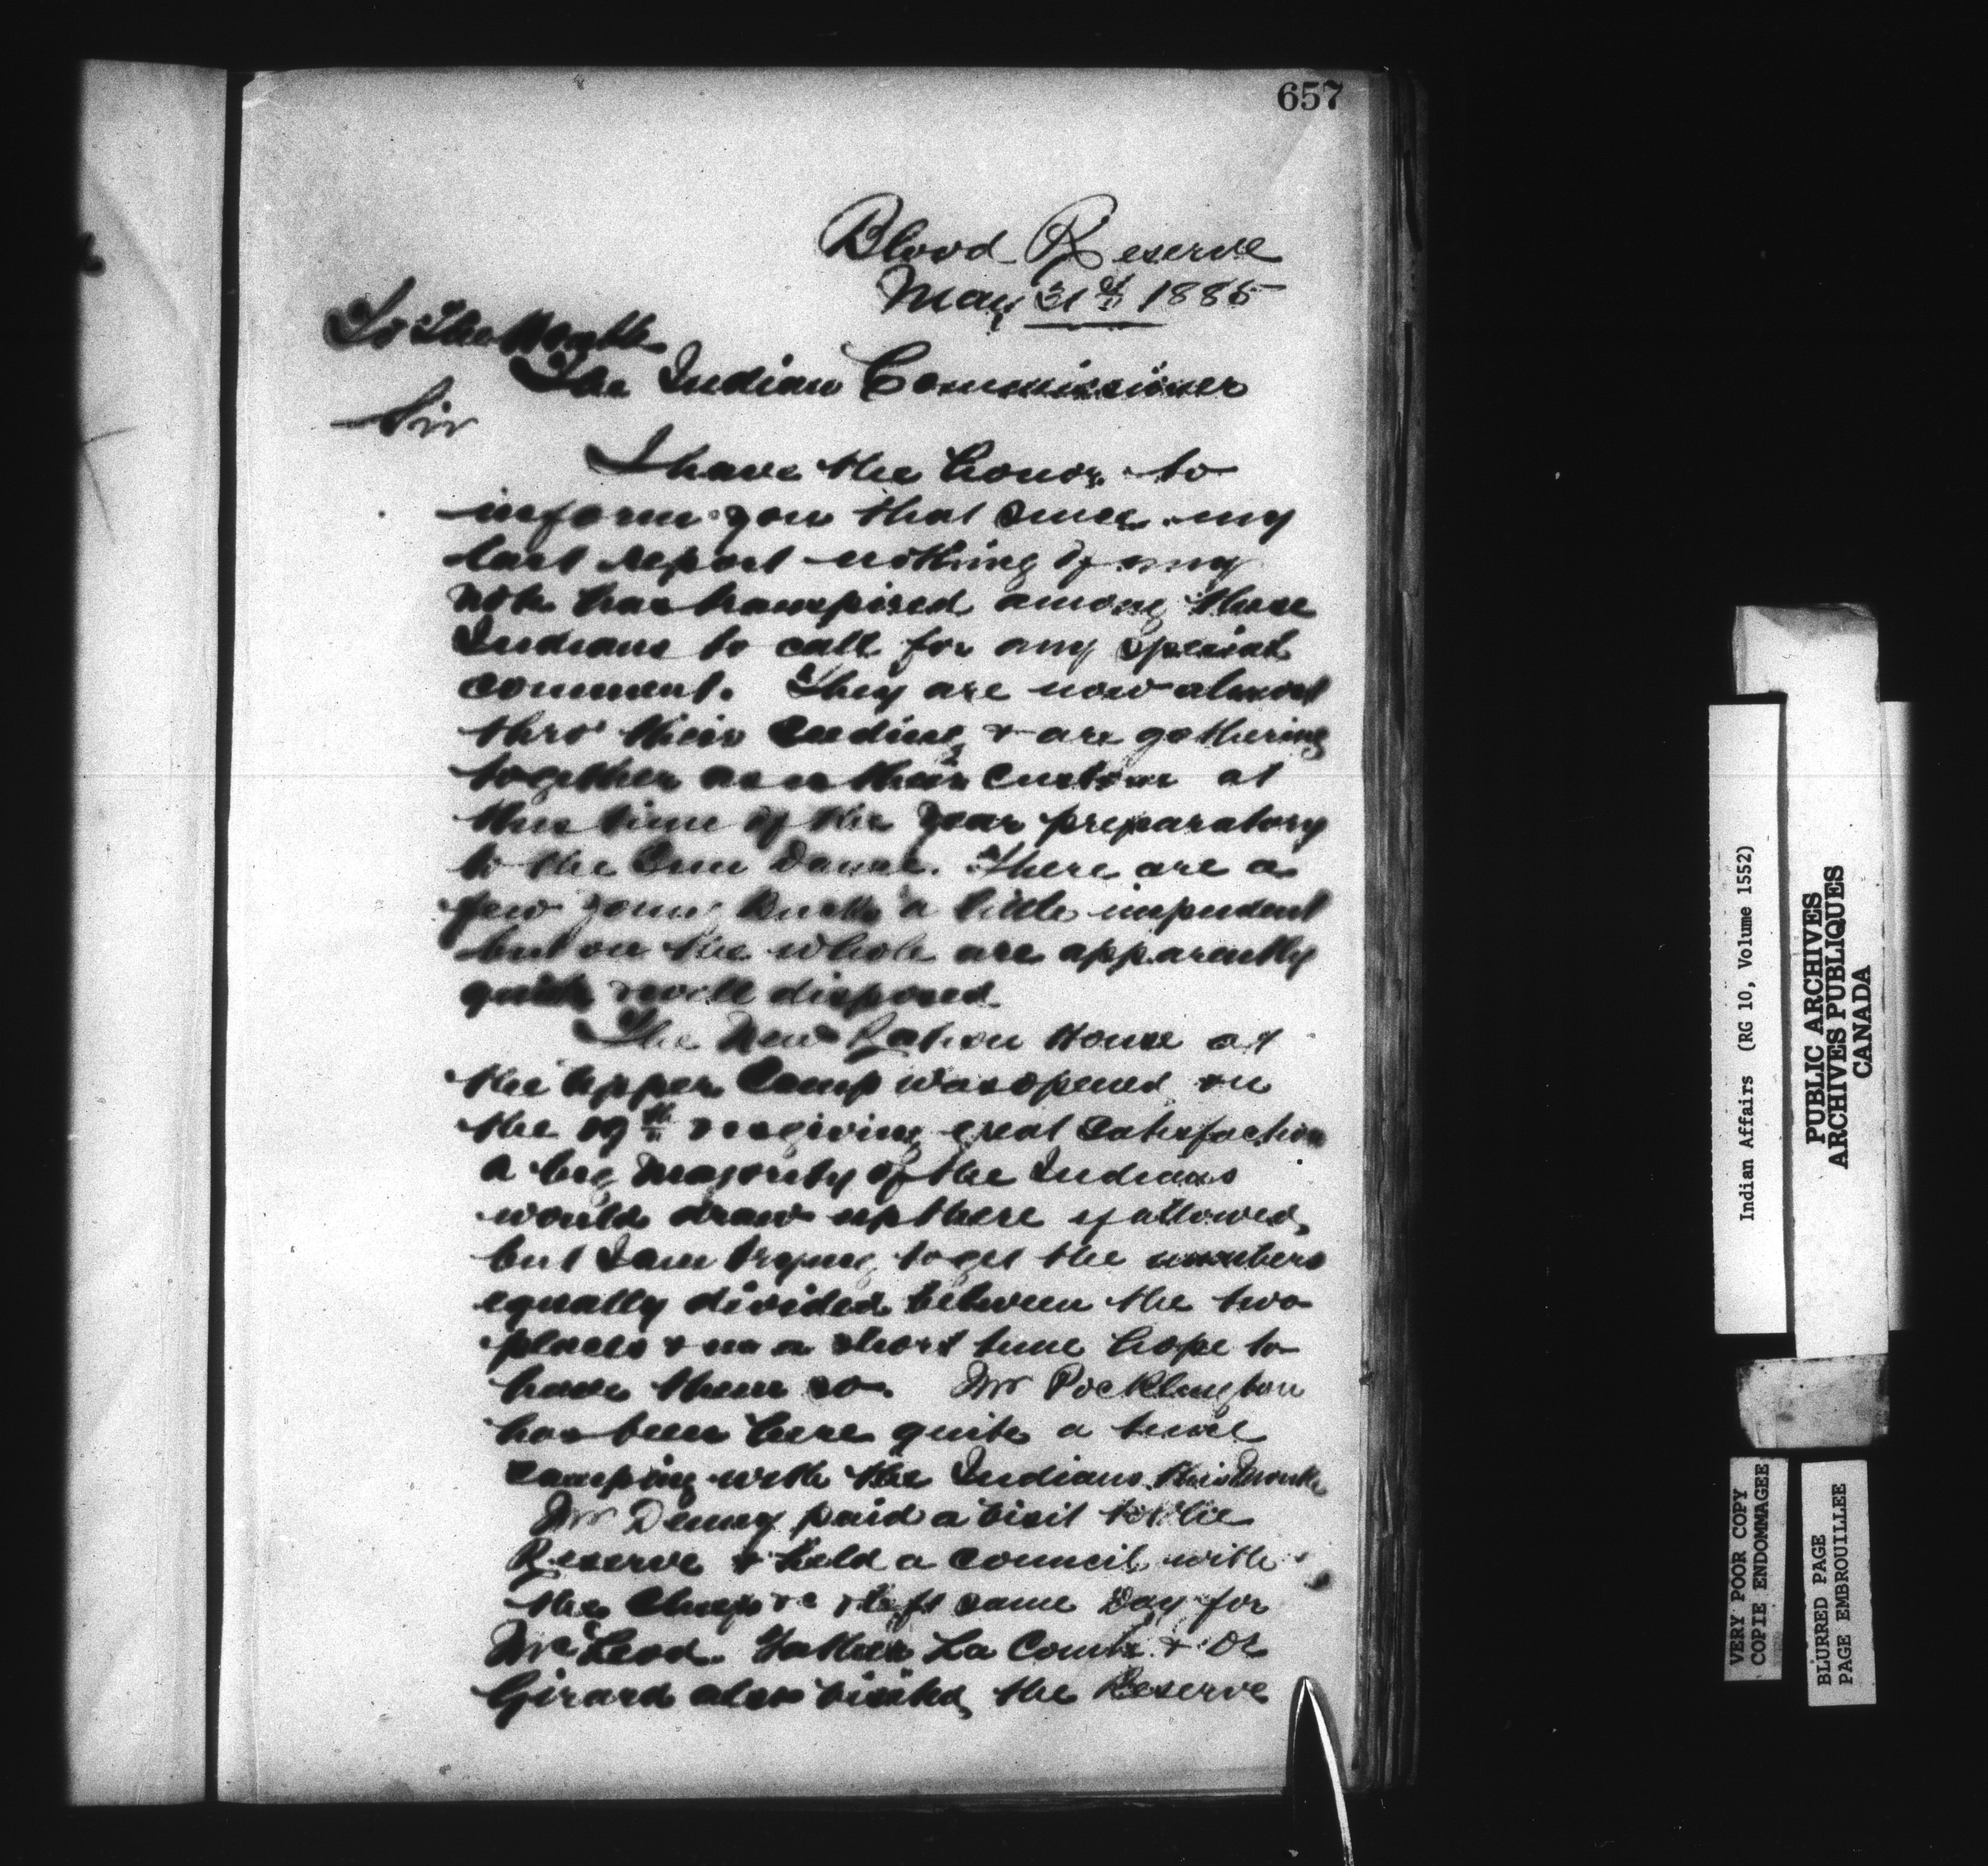 657
Blood Reserve
May 31st 1885
To The Honble
The Indian Commissioner
Sir
I have the honor to
inform you that since my
last report nothing of any
note has transpired among these
Indians to call for any special
comment. They are now almost
thro' their seeding & are gathering
together as is their custom at
this time of the year preparatory
to the Sun Dance. There are a
few young Bucks a little impudent
but on the whole are apparently
quiet & well disposed.
The New Ration House at
the upper Camp was opened on
the 19th & is giving great satisfaction
a big majority of the Indians
would draw up there if allowed,
but I am trying to get the numbers
equally divided between the two
places & in a short time hope to
have them so. Mr Pocklington
has been here quite a time
camping with the Indians this Month
Mr Denny paid a visit to the
Reserve & held a council with
the Chiefs & left same Day for
McLeod. Father La Combe & Dr
Girard also visited the Reserve
Indian Affairs (RG 10, Volume 1552)
PUBLIC ARCHIVES
ARCHIVES PUBLIQUES
CANADA
VERY POOR COPY
COPIE ENDOMMAGEE
BLURRED PAGE
PAGE EMBROUILLEE